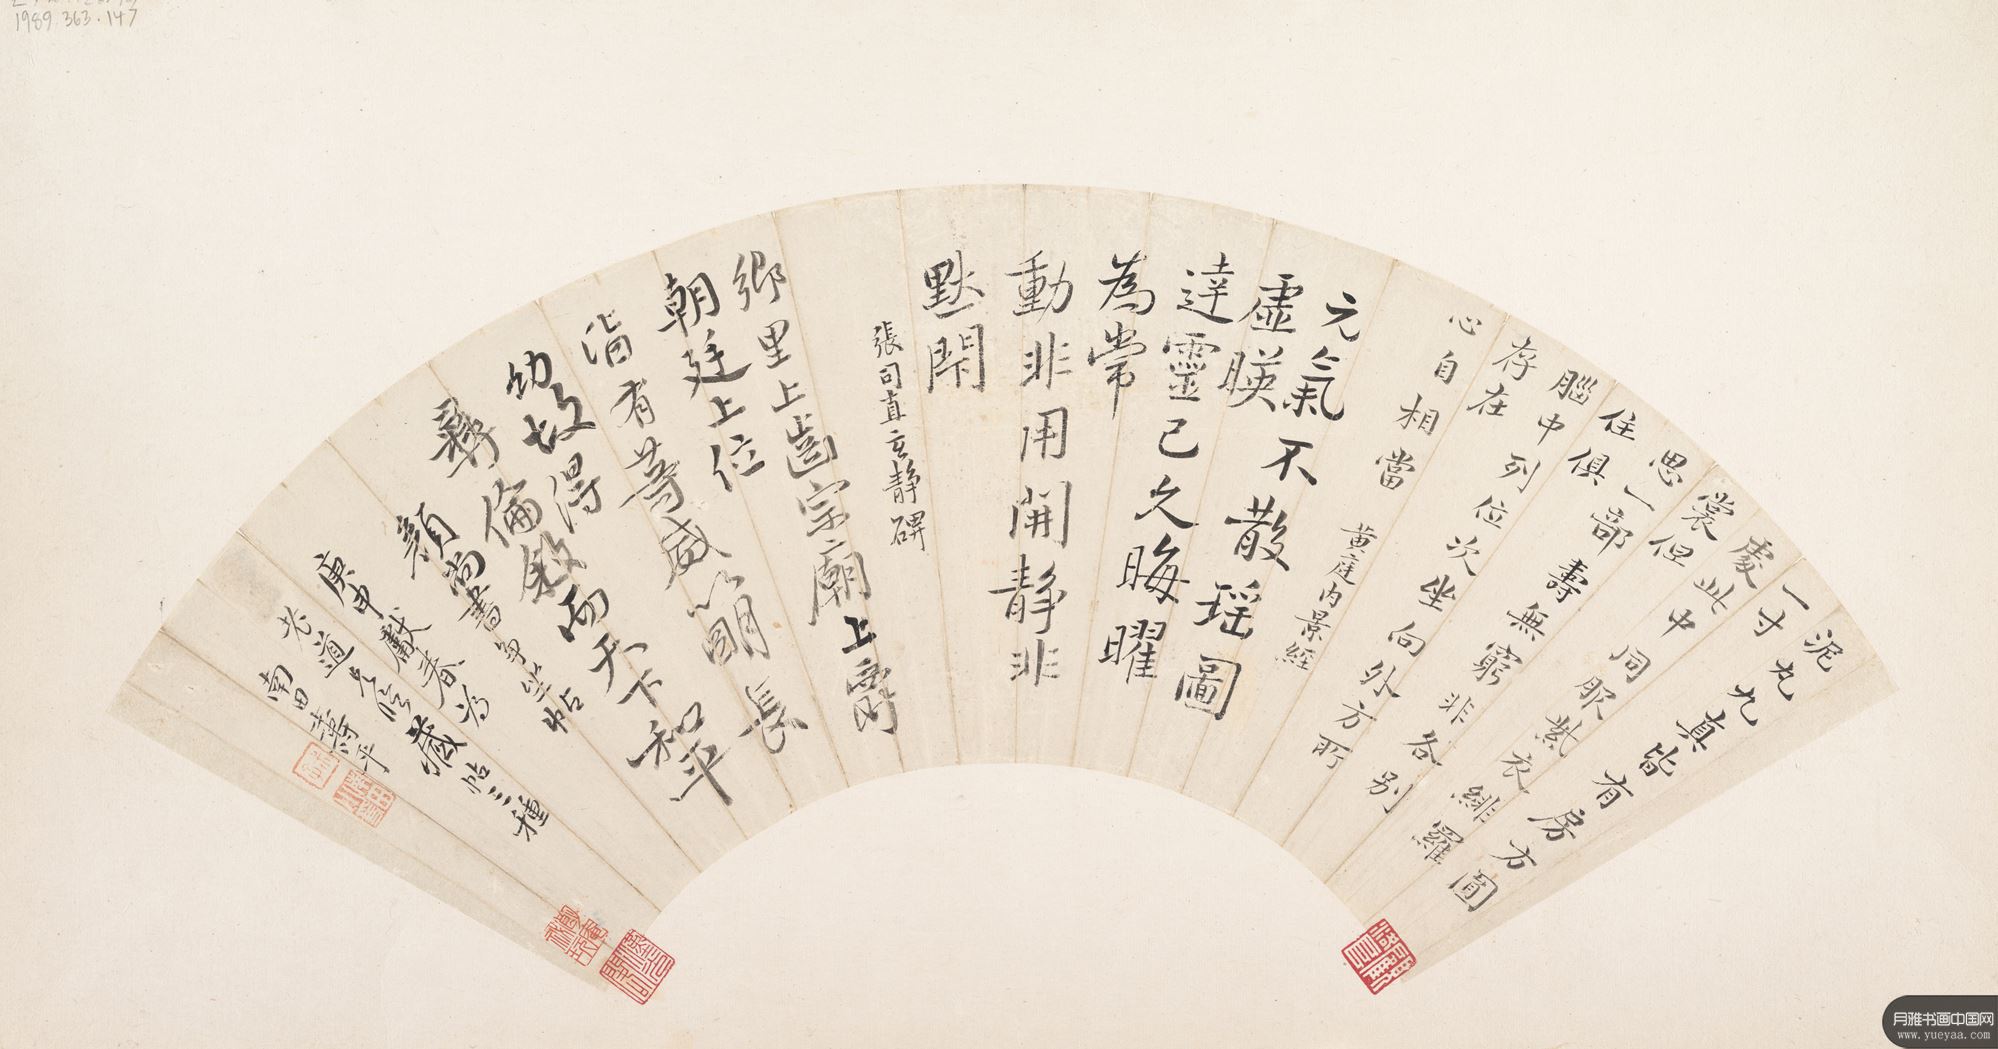 1989.363.147
泥丸九真皆有房方圓
一寸
處此中同服紫衣緋羅
裳但
思一部壽無窮非各別
住俱
腦中列位次坐向外方所
存在
心自相當
黃庭内景經
元氣不散瑶圖
虛暎
達靈已久晦曜
為常
動非用開静非
默閇
張司直玄静碑
鄉里上齒宗廟上爵
朝廷上位
皆有等威以明長
幼故得
彝倫敘而天下和平
顏尚書争坐帖
庚申獻春為
老道藏帖三種
南田壽平
月雅书画中国网
www.yueyaa.com